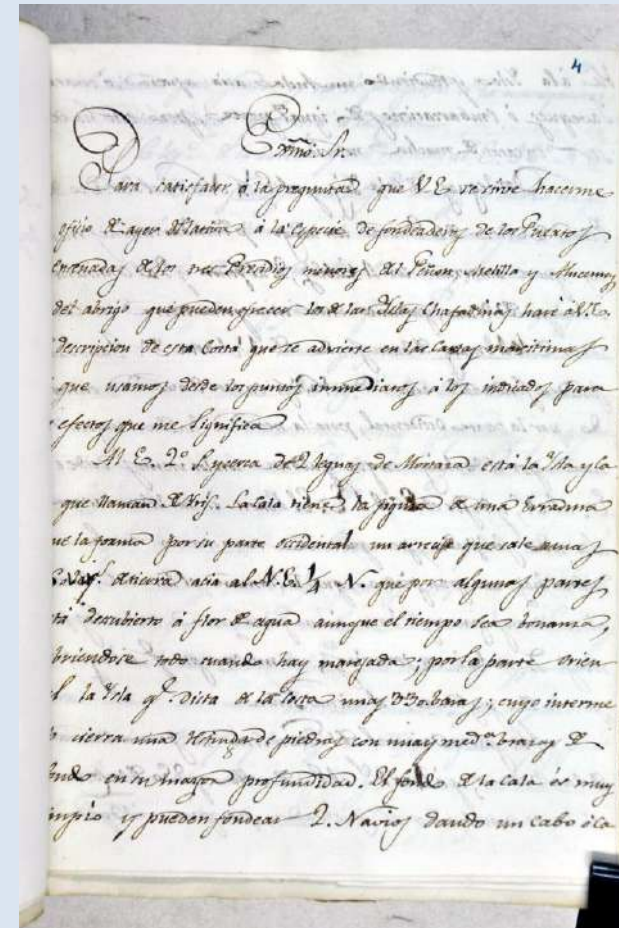 4
Exmo. Sr.
Para satisfacer á la pregunta que V.E. se sirve hacerme
oficio de ayer relativa á la especie de fondeaderos de los Puertos
ensenadas de los tres Presidios menores del Peñon, Melilla y Alucemas
del abrigo que pueden ofrecer los de las Yslas Chafarinas haré á V.E.
descripcion de esta Costa que se advierte en las Cartas maritimas
que usamos desde los puntos inmediatos á los indicados para
efectos que me significa
Al E. 2º S. y cerca de 2 leguas de está la Ysla y la
que llaman de Yris. La Cala tiene la figura de una Erradura
ue la forma por su parte occidental un arrecife que sale unas
acia al N.E. 1/4 N. que por algunas partes
tá descubierto á flor de agua aunque el tiempo sea bonanza,
briendose todo cuando hay marejada; por la parte orien
l la Ysla qe. dista de la Costa unas 330 baras; cuyo interme
o cierra una de piedras con muy med.s brazas de
ondo en su mayor profundidad. El fondo de la Cala és muy
impio y pueden fondear 2. Navios dando un cabo á la